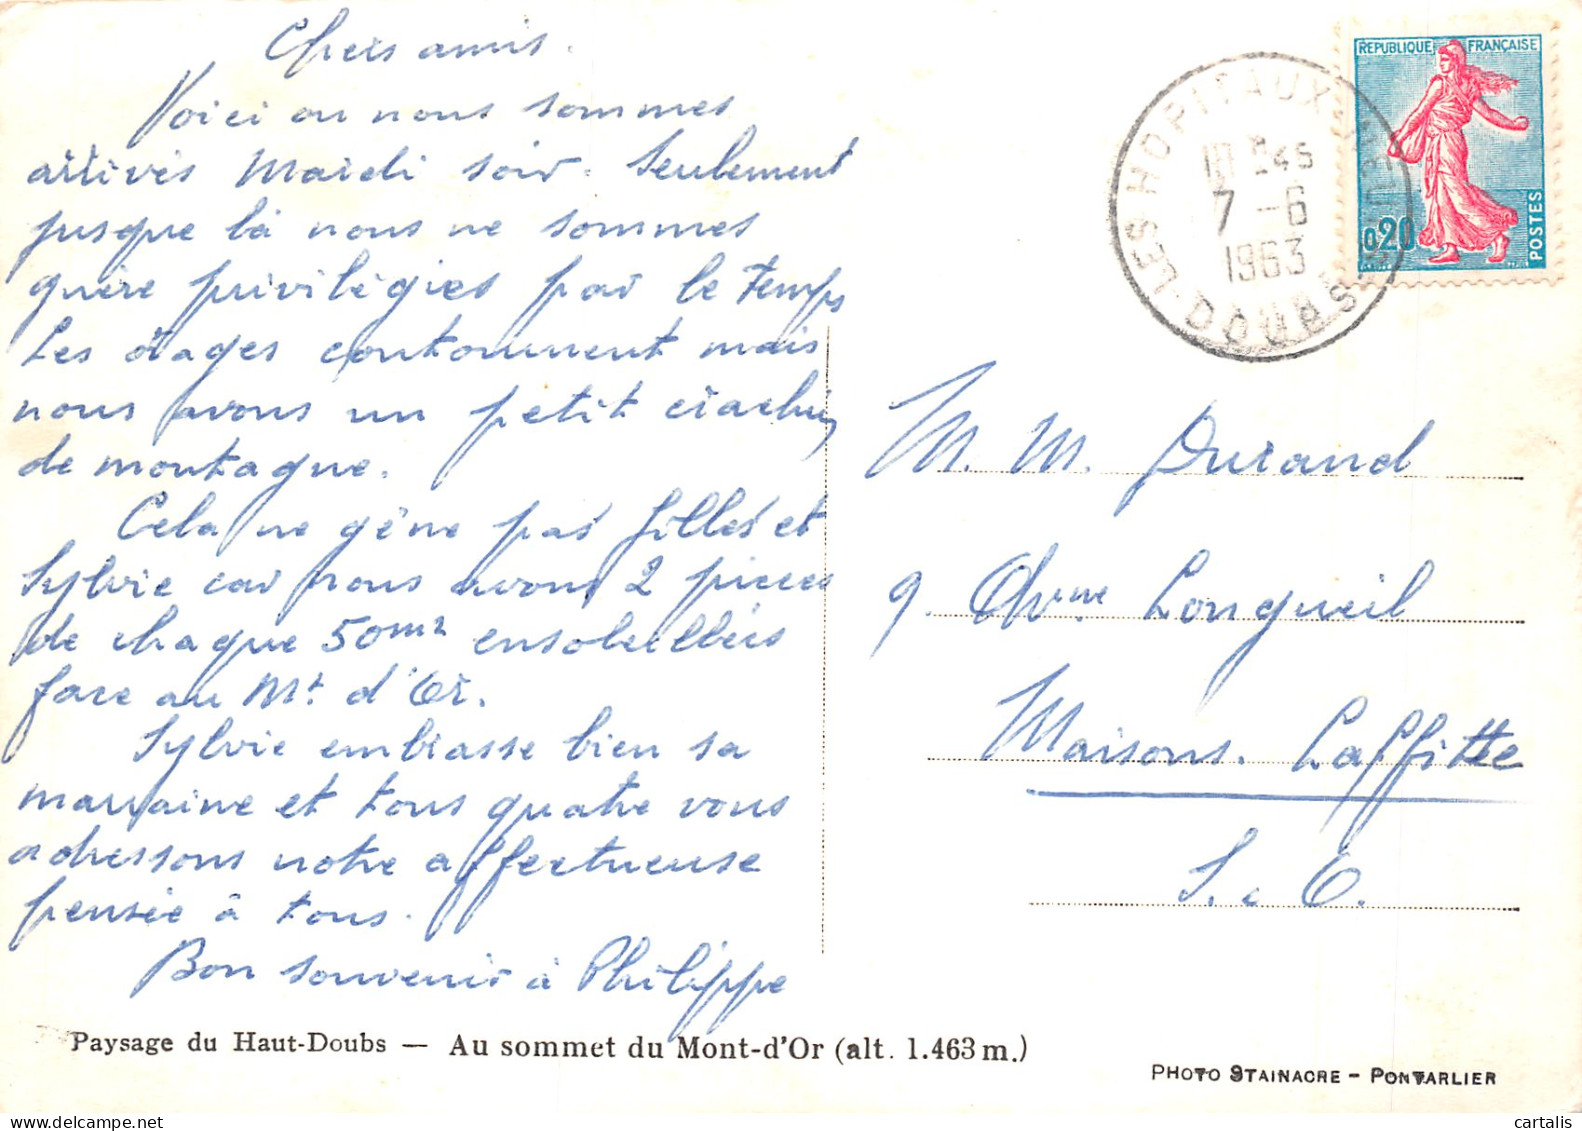 Chers amis.
Voici ou nous sommes
arrivés Mardi soir. Seulement
jusque là nous ne sommes
guère privilégiés par le temps
Les orages contournent mais
nous avons un petit crachin
de montagne.
Cela ne gêne pas Gilles et
Sylvie car nous avons 2 pièces
de chaque 50m2 ensoleillées
face au Mt d'Or.
Sylvie embrasse bien sa
marraine et tous quatre vous
adressons notre affectueuse
pensée à tous.
Bon souvenir à Philippe
REPUBLIQUE FRANÇAISE
0,20
POSTES
LES HOPITAUX
45
7-6
1963
DOUBS
M. M. Durand
9 Longueil
Maisons. Laffitte
S. & O.
Paysage du Haut-Doubs — Au sommet du Mont-d'Or (alt. 1.463 m.)
PHOTO STAINACRE - PONTARLIER
cartalis